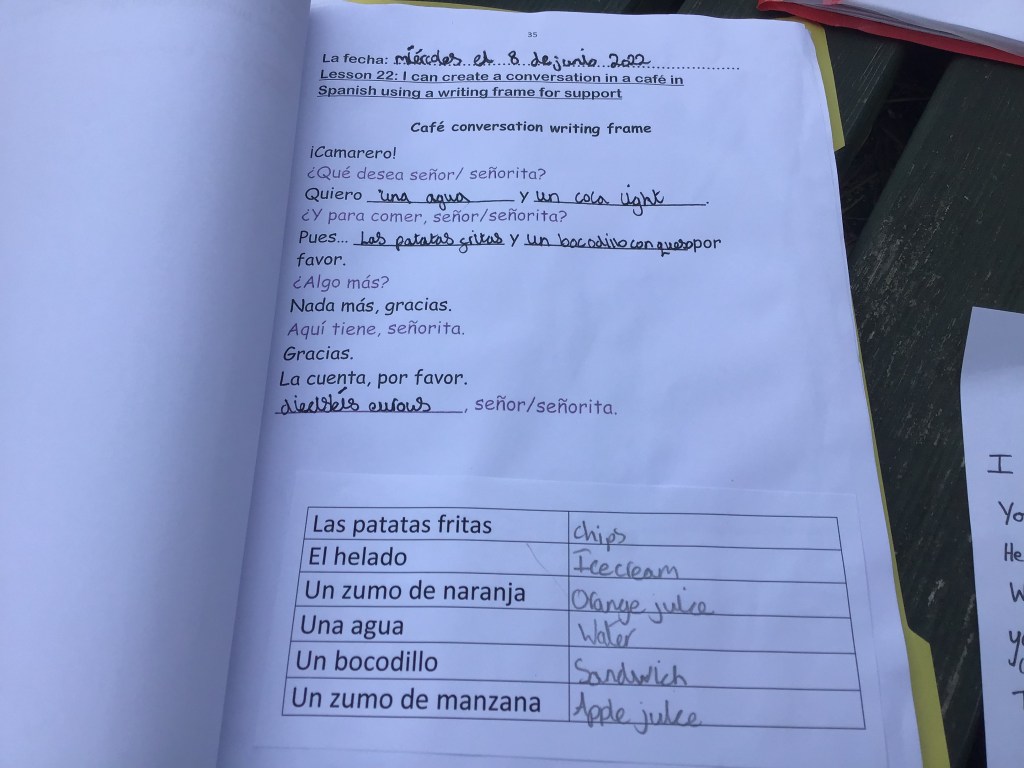 35
La fecha: miércoles el 8 de junio 2022
Lesson 22: I can create a conversation in a café in
Spanish using a writing frame for support
Café conversation writing frame
¡Camarero!
¿Qué desea señor/ señorita?
Quiero una agua y un coca light.
¿Y para comer, señor/señorita?
Pues... Las patatas fritas y un bocodillo con queso por
favor.
¿Algo más?
Nada más, gracias.
Aquí tiene, señorita.
Gracias.
La cuenta, por favor.
, señor/señorita.
Las patatas fritas chips
El helado Icecream
Un zumo de naranja Orange juice
Una agua Water
Un bocodillo Sandwich
Un zumo de manzana Apple juice
I
Yo
He
W